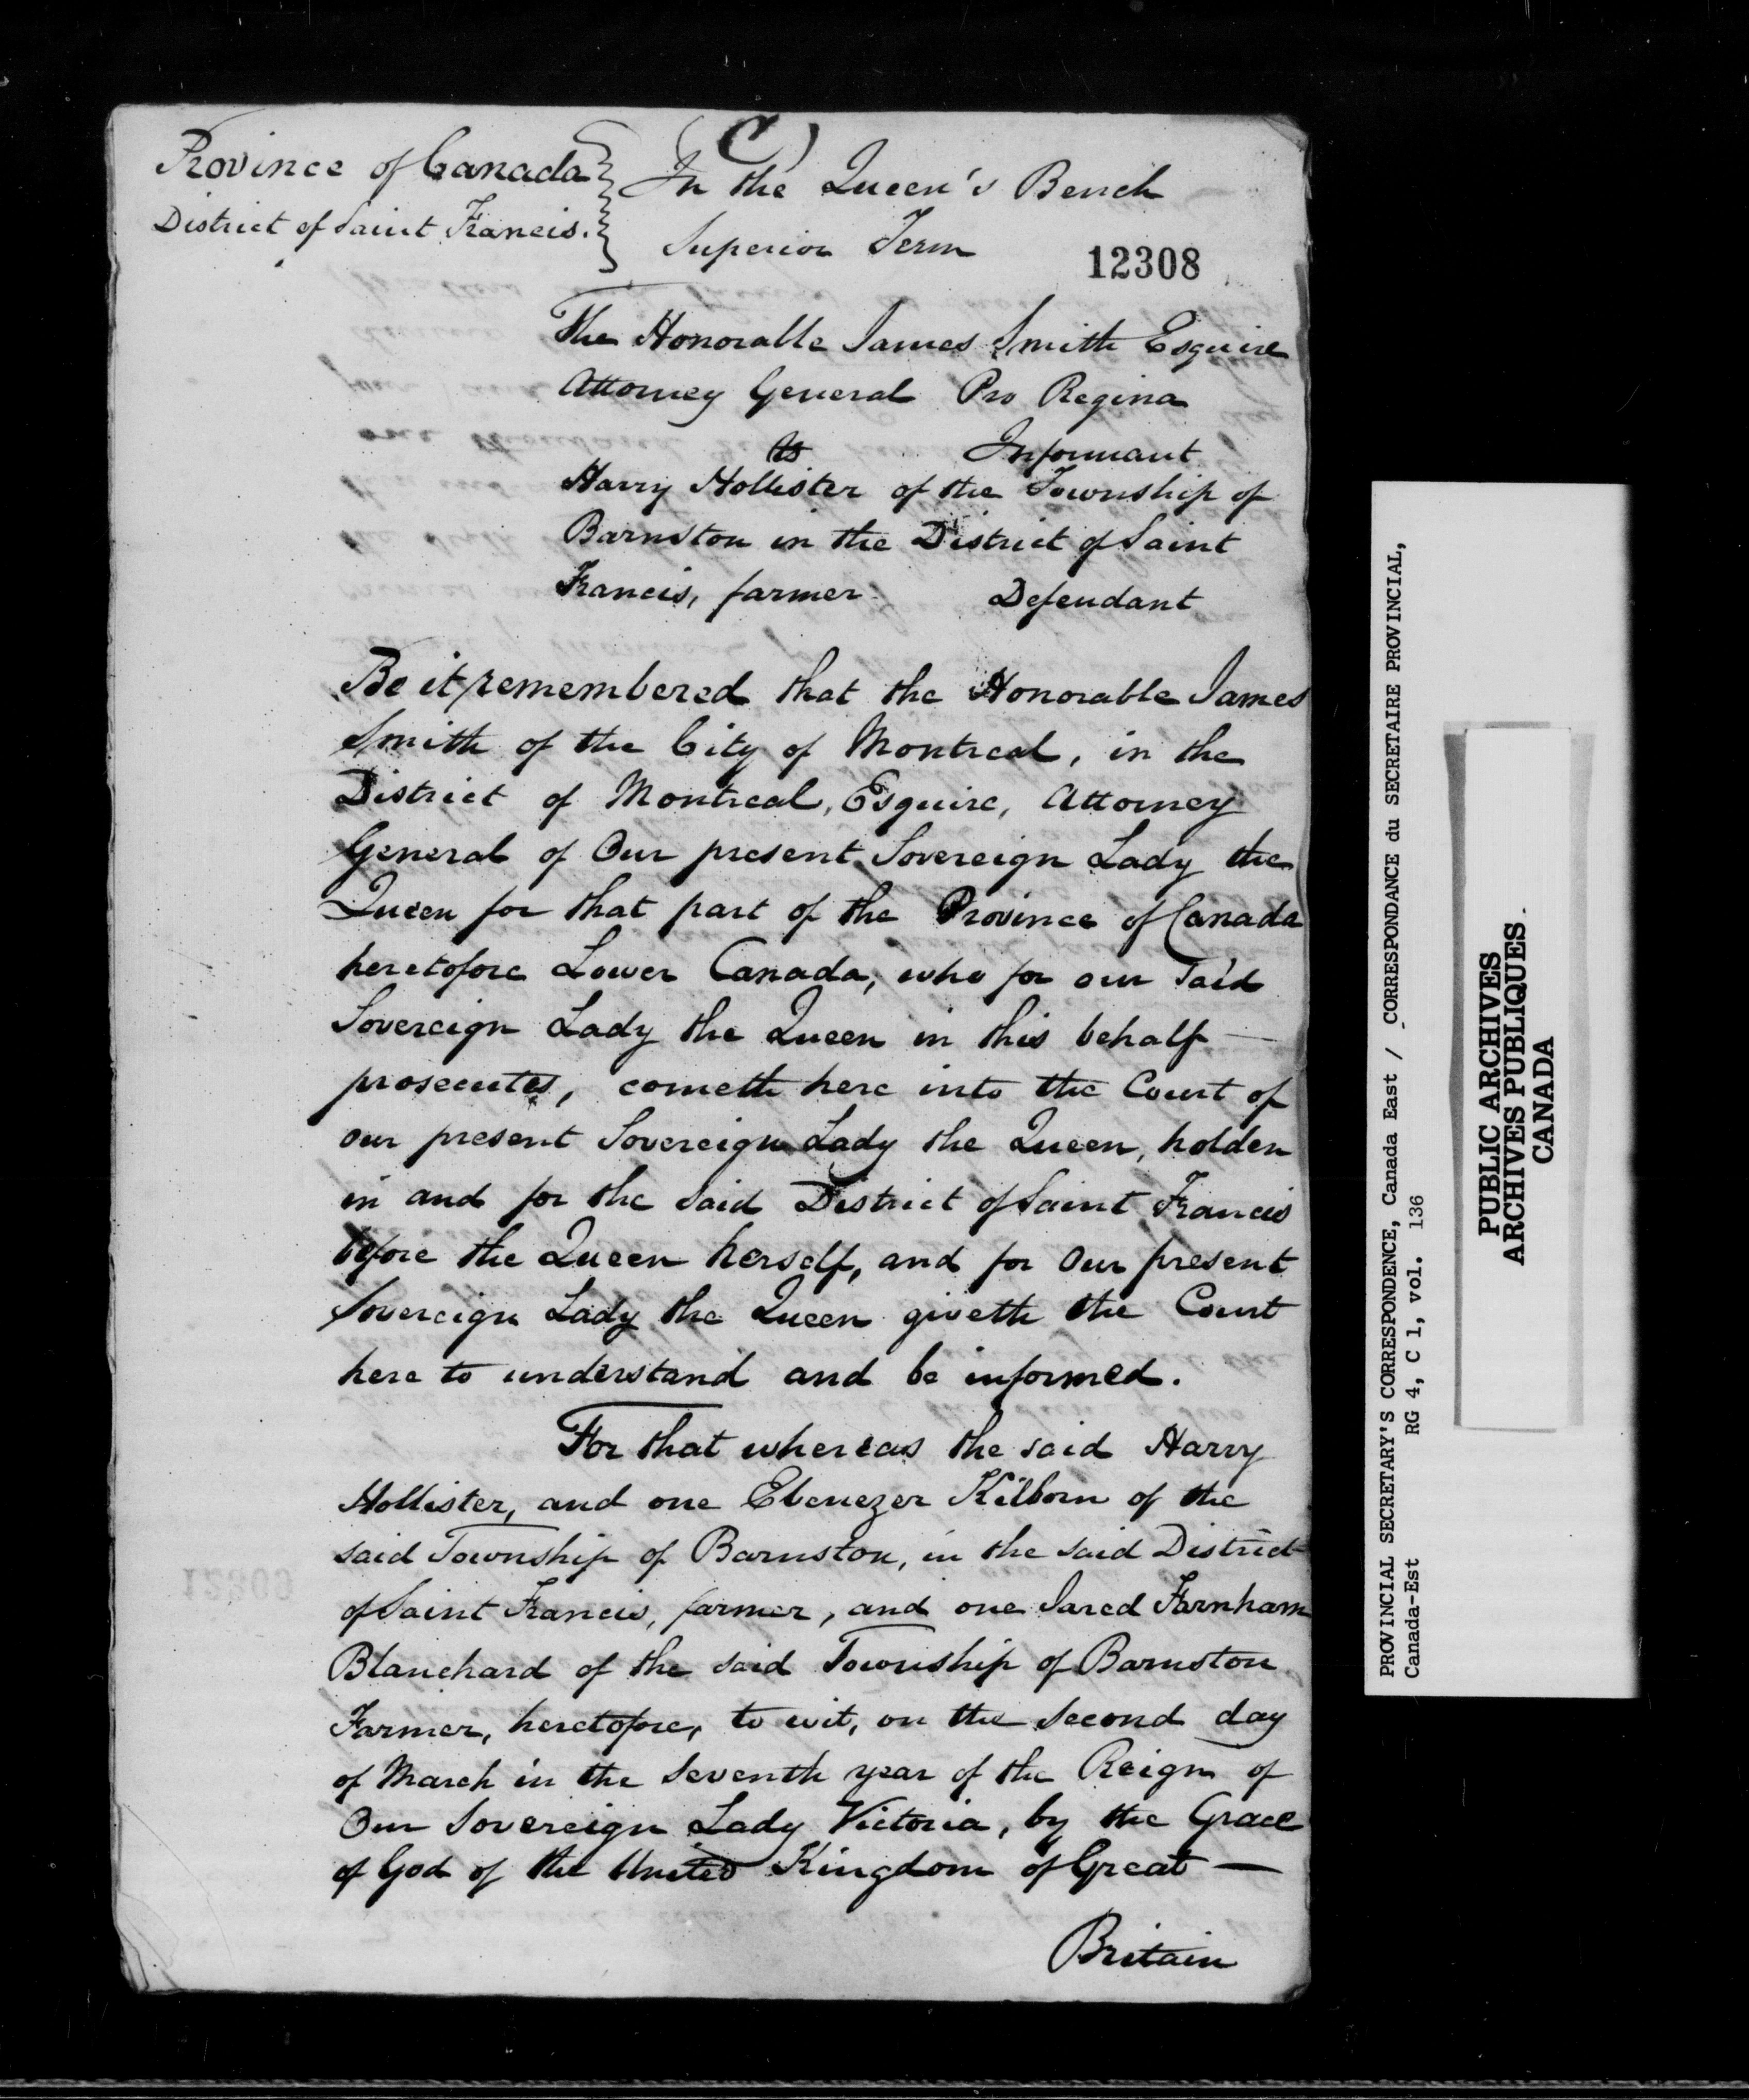 (C)
Province of Canada
District of Saint Francis.
In the Queen's Bench
Superior Term
12308
The Honorable James Smith Esquire
Attorney General Pro Regina
Informant
vs
Harry Hollister of the Township of
Barnston in the District of Saint
Francis, farmer Defendant
Be it remembered that the Honorable James
Smith of the City of Montreal, in the
District of Montreal, Esquire, Attorney
General of Our present Sovereign Lady the
Queen for that part of the Province of Canada
heretofore Lower Canada, who for our said
Sovereign Lady the Queen in this behalf —
prosecutes, cometh here into the Court of
our present Sovereign Lady the Queen, holden
in and for the said District of Saint Francis
before the Queen herself, and for Our present
Sovereign Lady the Queen giveth the Court
here to understand and be informed.
For that whereas the said Harry
Hollister, and one Ebenezer Kilborn of the
said Township of Barnston, in the said District
of Saint Francis, farmer, and one Jared Farnham
Blanchard of the said Township of Barnston
Farmer, heretofore, to wit, on the second day
of March in the seventh year of the Reign of
Our Sovereign Lady Victoria, by the Grace
of God of the United Kingdom of Great —
Britain
12309
PROVINCIAL SECRETARY'S CORRESPONDENCE, Canada East / CORRESPONDANCE du SECRETAIRE PROVINCIAL,
Canada-Est RG 4, C 1, vol. 136
PUBLIC ARCHIVES
ARCHIVES PUBLIQUES
CANADA